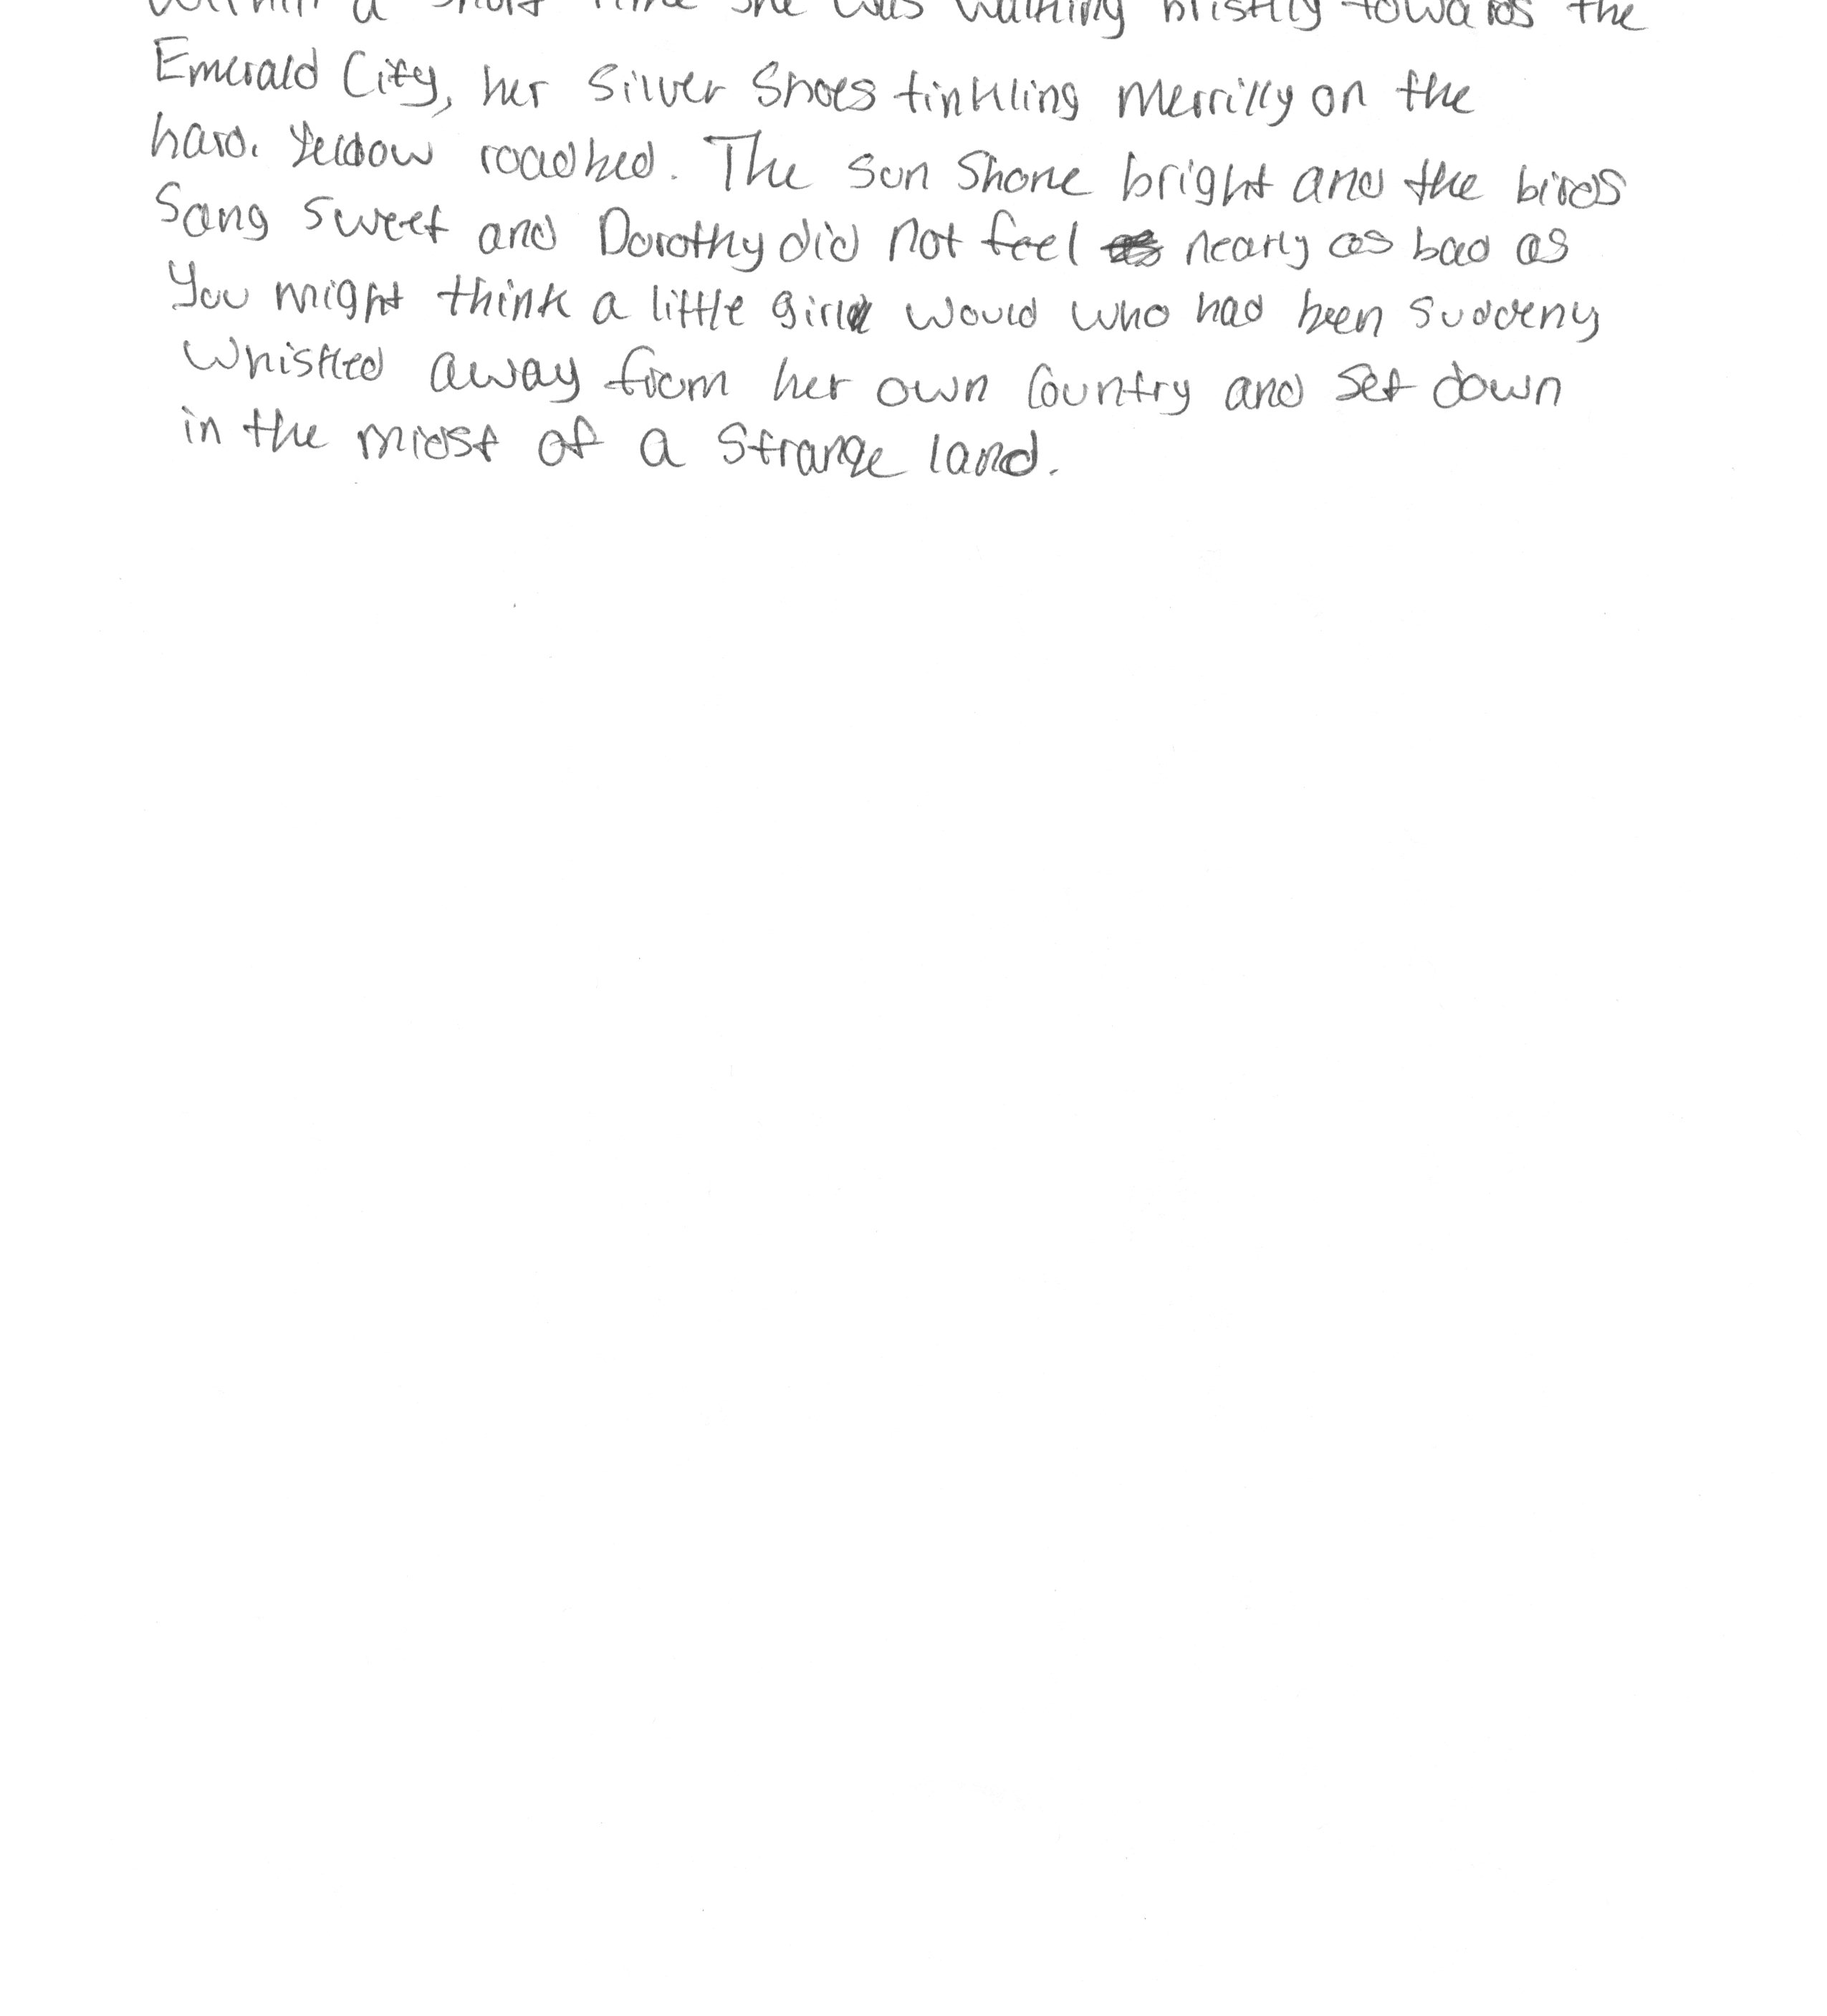 Within a short time she was walking briskly towards the
Emerald City, her Silver Shoes tinkling merrilly on the
hard. Yellow roadbed. The sun shone bright and the birds
Sang sweet and Dorothy did not feel nearly as bad as
You might think a little girl would who had been suddeny
Whistled away from her own Country and set down
in the midst of a strange land.